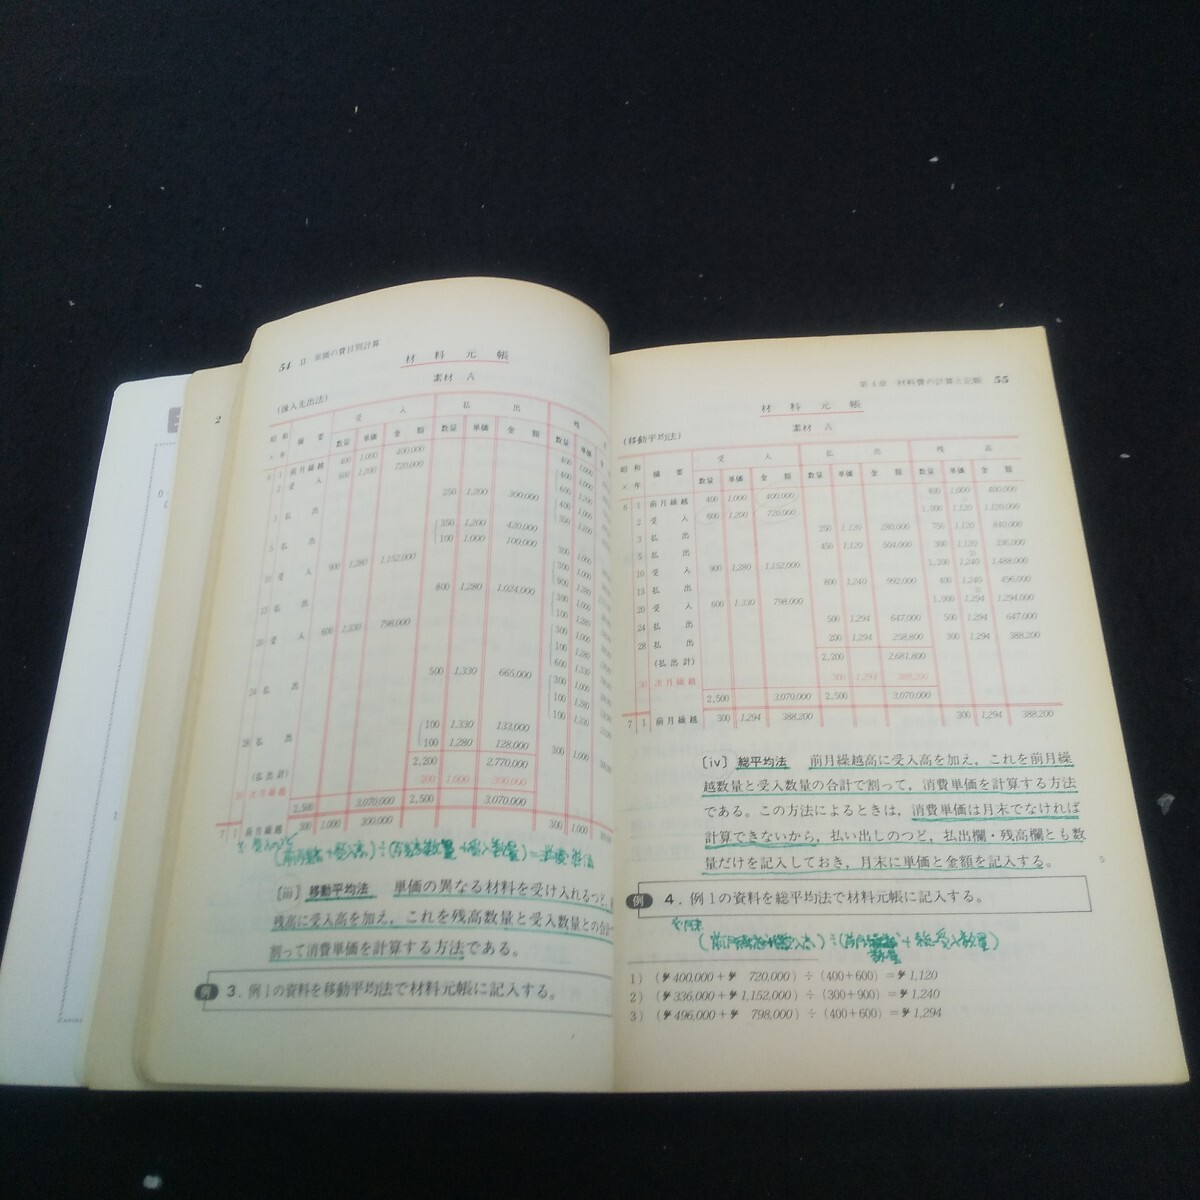 54 II 原価の費目別計算
材料元帳
素材 A
(後入先出法)
昭和×年 摘要 受入 払出 残
数量 単価 金額 数量 単価 金額 数量 単価
6 1 前月繰越 400 1,000 400,000 400 1,000
2 受入 600 1,200 720,000 400 1,000
600 1,200
3 払出 250 1,200 300,000 400 1,000
350 1,200
5 払出 350 1,200 420,000
100 1,000 100,000 300 1,000
10 受入 900 1,280 1,152,000 300 1,000
900 1,280
13 払出 800 1,280 1,024,000 300 1,000
100 1,280
20 受入 600 1,330 798,000 300 1,000
100 1,280
600 1,330
24 払出 500 1,330 665,000 300 1,000
100 1,280
100 1,330
28 払出 100 1,330 133,000
100 1,280 128,000 300 1,000
(払出計) 2,200 2,770,000
次月繰越 300 1,000 300,000
2,500 3,070,000 2,500 3,070,000
7 1 前月繰越 300 1,000 300,000 300 1,000
[iii] 移動平均法 単価の異なる材料を受け入れるつど,
残高に受入高を加え,これを残高数量と受入数量との合計
割って消費単価を計算する方法である。
例 3.例1の資料を移動平均法で材料元帳に記入する。
第4章 材料費の計算と記帳 55
材料元帳
素材 A
(移動平均法)
昭和×年 摘要 受入 払出 残高
数量 単価 金額 数量 単価 金額 数量 単価 金額
6 1 前月繰越 400 1,000 400,000 400 1,000 400,000
2 受入 600 1,200 720,000 1,000 1,120 1,120,000
3 払出 250 1,120 280,000 750 1,120 840,000
5 払出 450 1,120 504,000 300 1,120 336,000
10 受入 900 1,280 1,152,000 1,200 1,240 1,488,000
13 払出 800 1,240 992,000 400 1,240 496,000
20 受入 600 1,330 798,000 1,000 1,294 1,294,000
24 払出 500 1,294 647,000 500 1,294 647,000
28 払出 200 1,294 258,800 300 1,294 388,200
(払出計) 2,200 2,681,800
30 次月繰越 300 1,294 388,200
2,500 3,070,000 2,500 3,070,000
7 1 前月繰越 300 1,294 388,200 300 1,294 388,200
[iv] 総平均法 前月繰越高に受入高を加え,これを前月繰
越数量と受入数量の合計で割って,消費単価を計算する方法
である。この方法によるときは,消費単価は月末でなければ
計算できないから,払い出しのつど,払出欄・残高欄とも数
量だけを記入しておき,月末に単価と金額を記入する。
例 4.例1の資料を総平均法で材料元帳に記入する。
1) (¥400,000+¥ 720,000)÷(400+600)=¥1,120
2) (¥336,000+¥1,152,000)÷(300+900)=¥1,240
3) (¥496,000+¥ 798,000)÷(400+600)=¥1,294